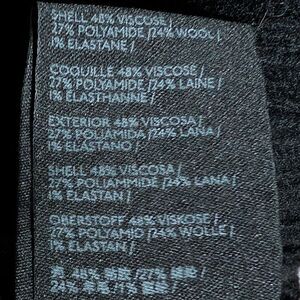 SHELL 48% VISCOSE /
27% POLYAMIDE /24% WOOL /
1% ELASTANE /
COQUILLE 48% VISCOSE /
27% POLYAMIDE /24% LAINE /
1% ÉLASTHANNE /
EXTERIOR 48% VISCOSA /
27% POLIAMIDA /24% LANA /
1% ELASTANO /
SHELL 48% VISCOSA /
27% POLIAMMIDE /24% LANA /
1% ELASTAN /
OBERSTOFF 48% VISKOSE /
27% POLYAMID /24% WOLLE /
1% ELASTAN /
48% /27% /
24% /1% /